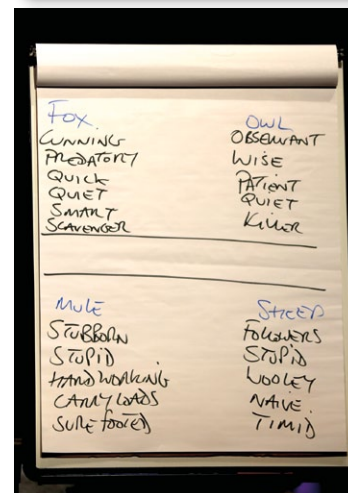 FOX
CUNNING
PREDATORY
QUICK
QUIET
SMART
SCAVENGER
OWL
OBSERVANT
WISE
PATIENT
QUIET
KILLER
MULE
STUBBORN
STUPID
HARD WORKING
CARRY LOADS
SURE FOOTED
SHEEP
FOLLOWERS
STUPID
WOOLEY
NAIVE
TIMID